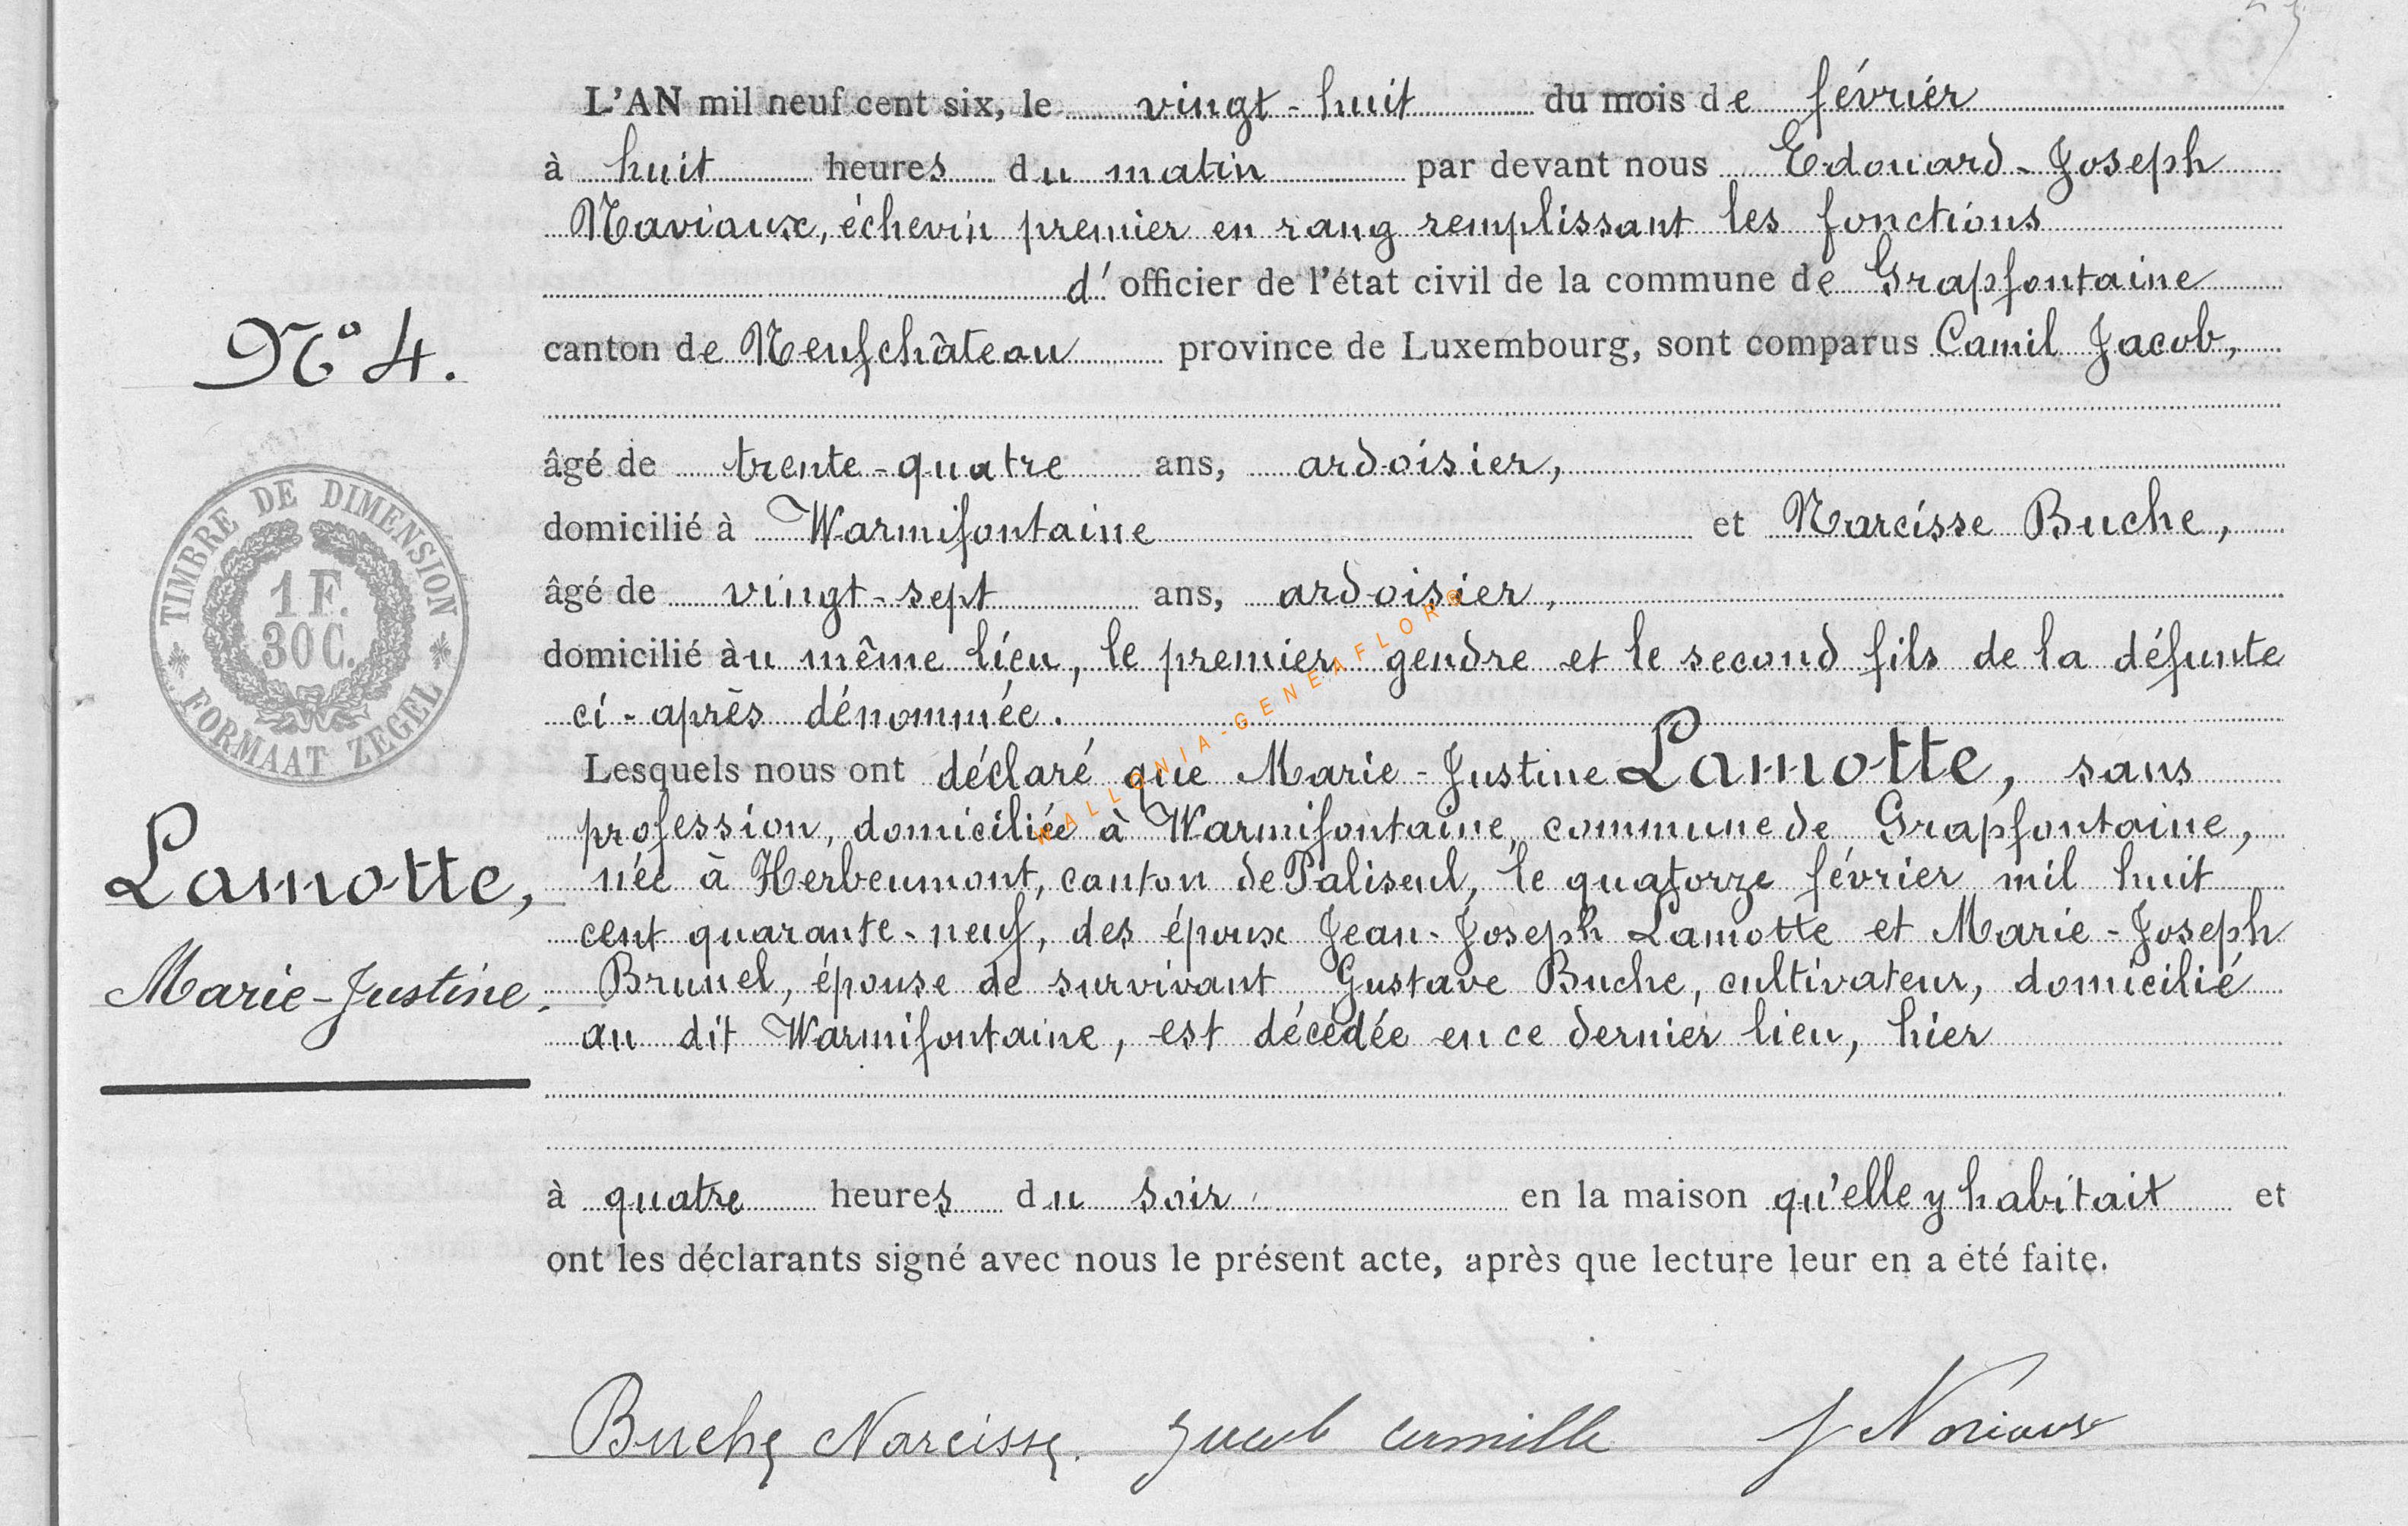 L'AN mil neuf cent six, le vingt-huit du mois de février
à huit heures du matin par devant nous Edouard-Joseph
Naviaux, échevin premier en rang remplissant les fonctions
d'officier de l'état civil de la commune de Grapfontaine
N° 4.
canton de Neufchâteau province de Luxembourg, sont comparus Camil Jacob,
âgé de trente-quatre ans, ardoisier,
domicilié à Warmifontaine et Narcisse Buche,
âgé de vingt-sept ans, ardoisier,
domicilié àu même lieu, le premier gendre et le second fils de la défunte
ci-après dénommée.
TIMBRE DE DIMENSION
1 F.
30 C.
FORMAAT ZEGEL
Lesquels nous ont déclaré que Marie-Justine Lamotte, sans
profession, domiciliée à Warmifontaine, commune de Grapfontaine,
née à Herbeumont, canton de Paliseul, le quatorze février mil huit
cent quarante-neuf, des époux Jean-Joseph Lamotte et Marie-Joseph
Brunel, épouse de survivant Gustave Buche, cultivateur, domicilié
au dit Warmifontaine, est décédée en ce dernier lieu, hier
Lamotte,
Marie-Justine.
à quatre heures du soir en la maison qu'elle y habitait et
ont les déclarants signé avec nous le présent acte, après que lecture leur en a été faite.
Buche Narcisse. Jacob Camille
WALLONIA-GENEAFLOR®